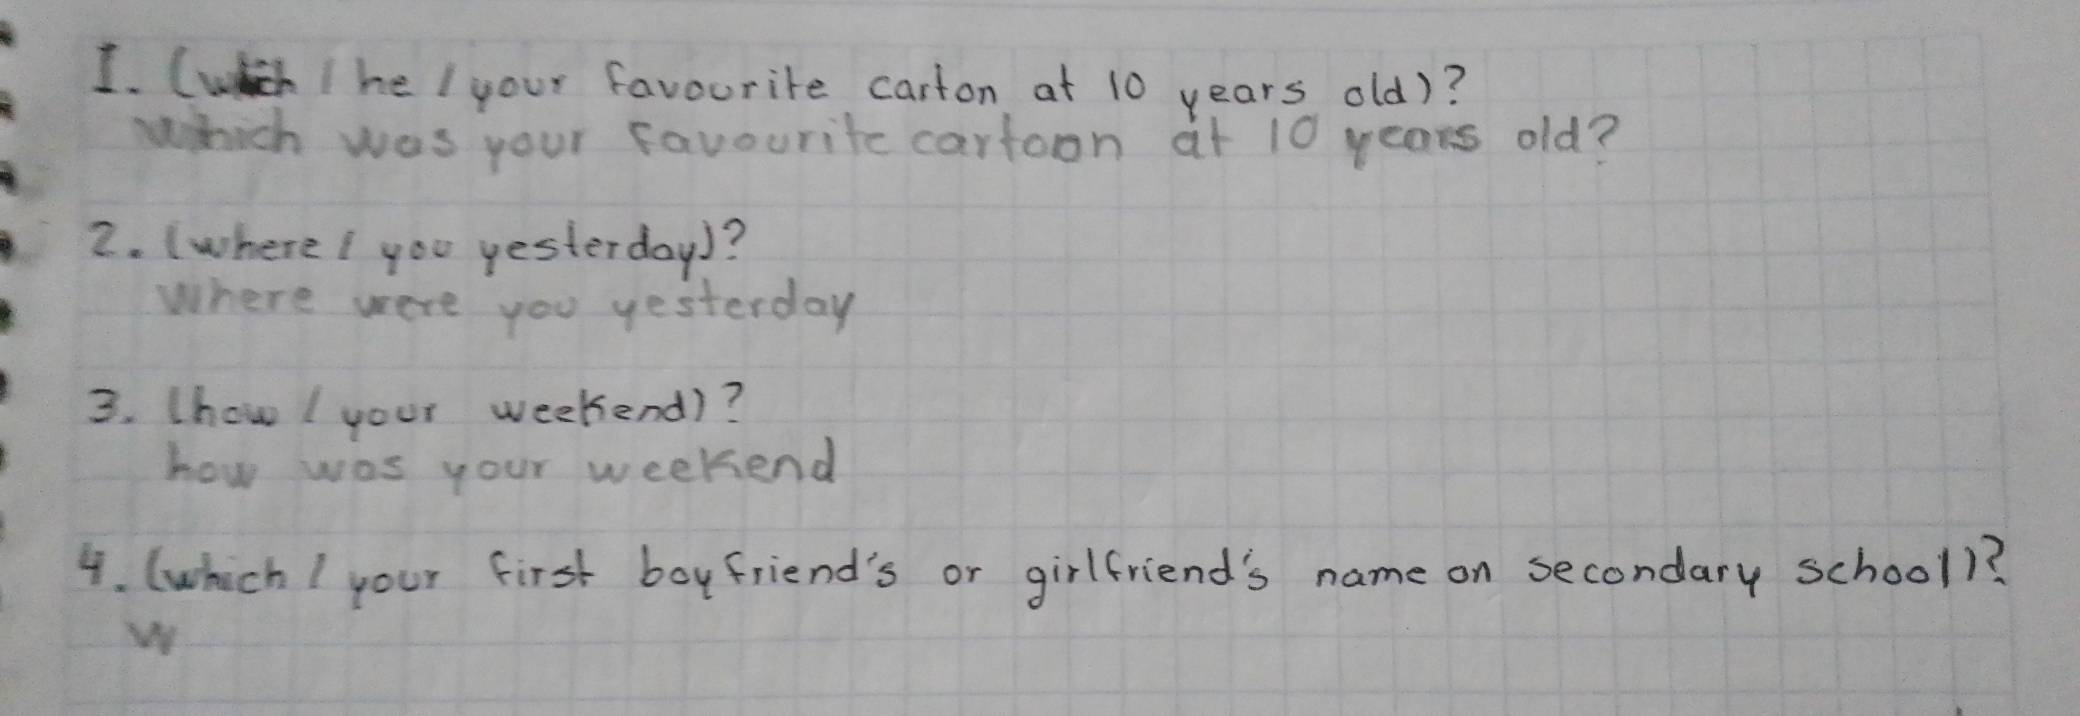 1. (which / he / your favourite carton at 10 years old)?
which was your favourite cartoon at 10 years old?
2. (where / you yesterday)?
where were you yesterday
3. (how / your weekend)?
how was your weekend
4. (which / your first boyfriend's or girlfriend's name on secondary school)?
W